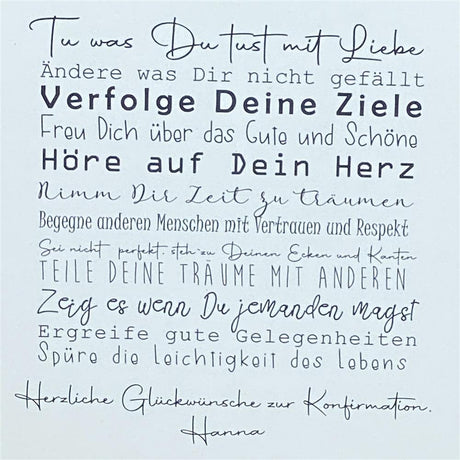 Tu was Du tust mit Liebe
Ändere was Dir nicht gefällt
Verfolge Deine Ziele
Freu Dich über das Gute und Schöne
Höre auf Dein Herz
Nimm Dir Zeit zu träumen
Begegne anderen Menschen mit Vertrauen und Respekt
Sei nicht perfekt, steh zu Deinen Ecken und Kanten
TEILE DEINE TRÄUME MIT ANDEREN
Zeig es wenn Du jemanden magst
Ergreife gute Gelegenheiten
Spüre die Leichtigkeit des Lebens
Herzliche Glückwünsche zur Konfirmation.
Hanna